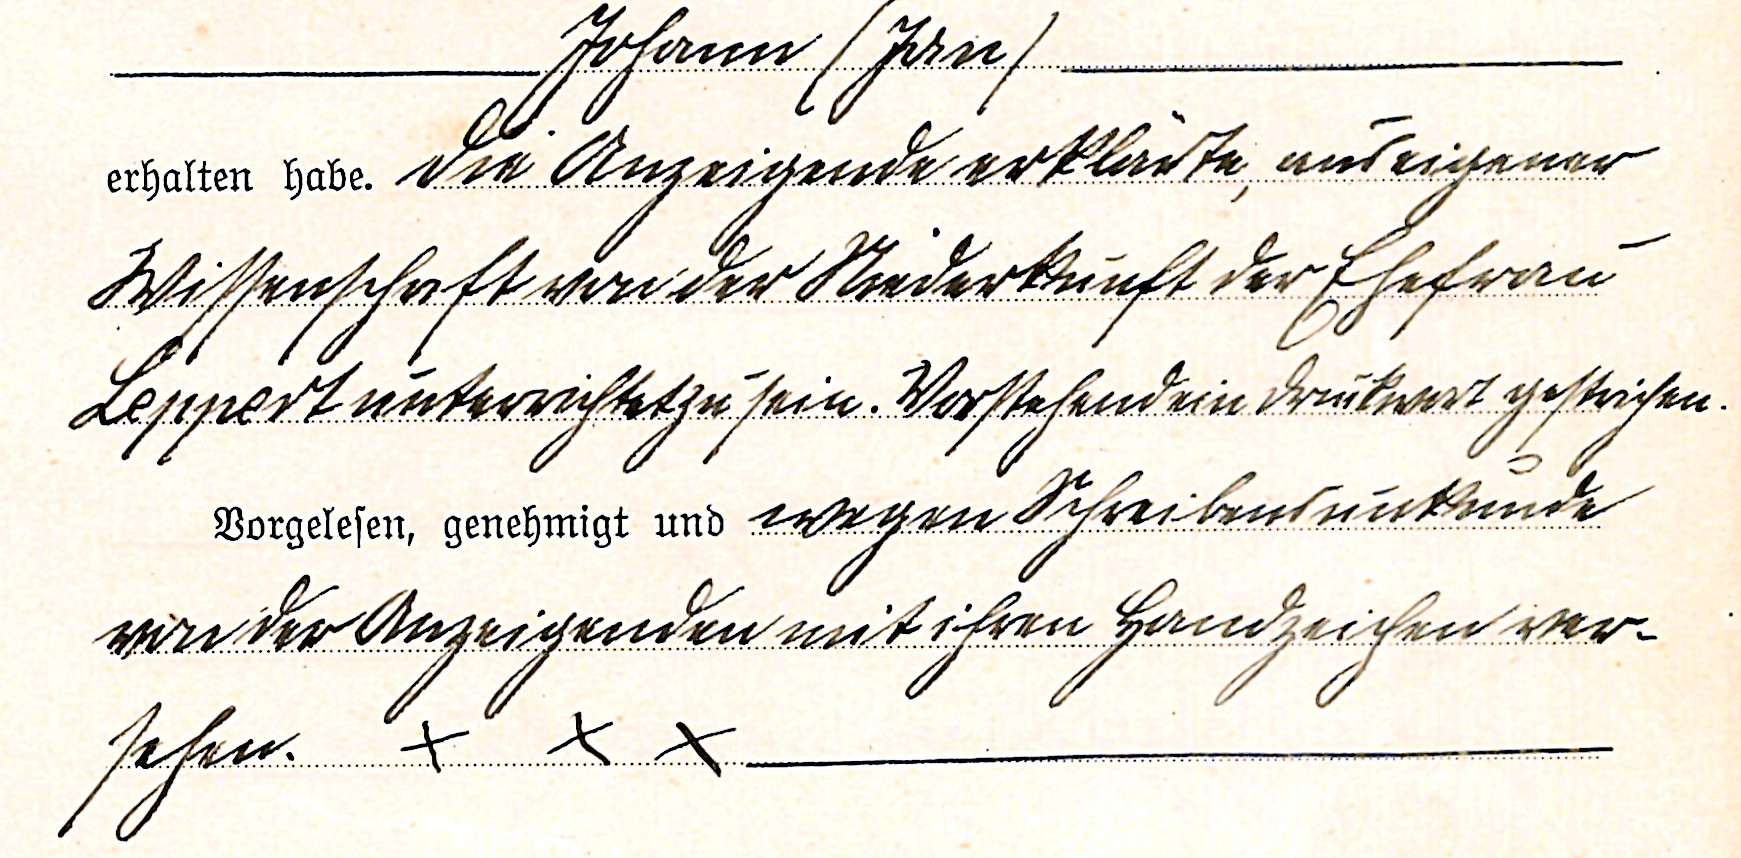 Johann (Jan)
erhalten habe. Die Anzeigende erklärte, aus eigener
Wissenschaft von der Niederkunft der Ehefrau
Leppert unterrichtet zu sein. Vorstehend ein Druckwort gestrichen.
Vorgelesen, genehmigt und wegen Schreibensunkunde
von der Anzeigenden mit ihren Handzeichen ver-
sehen. + + +